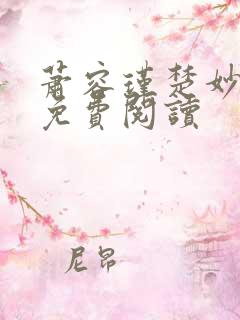 萧容瑾楚妙
免費閱讀
尼昂